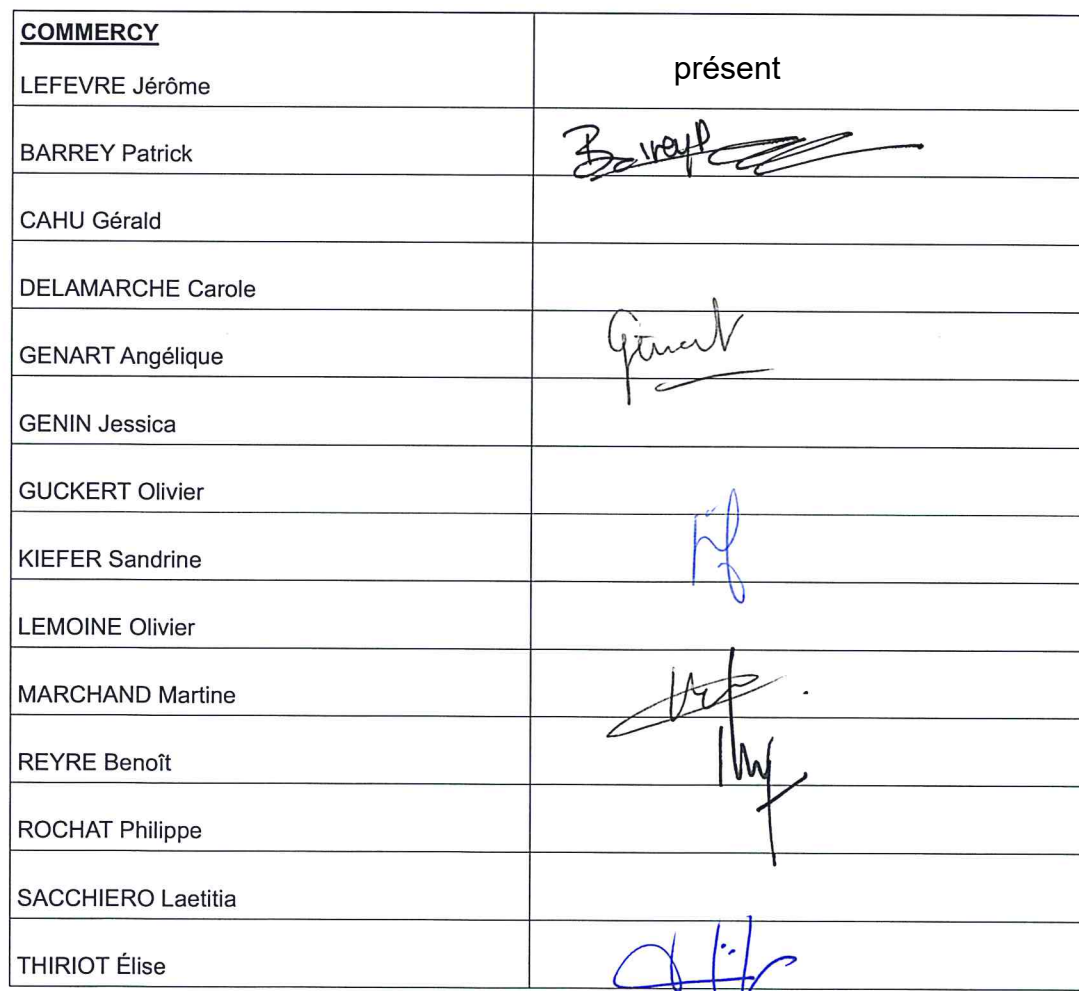 COMMERCY
LEFEVRE Jérôme
présent
BARREY Patrick
CAHU Gérald
DELAMARCHE Carole
GENART Angélique
Genart
GENIN Jessica
GUCKERT Olivier
KIEFER Sandrine
LEMOINE Olivier
MARCHAND Martine
REYRE Benoît
ROCHAT Philippe
SACCHIERO Laetitia
THIRIOT Élise